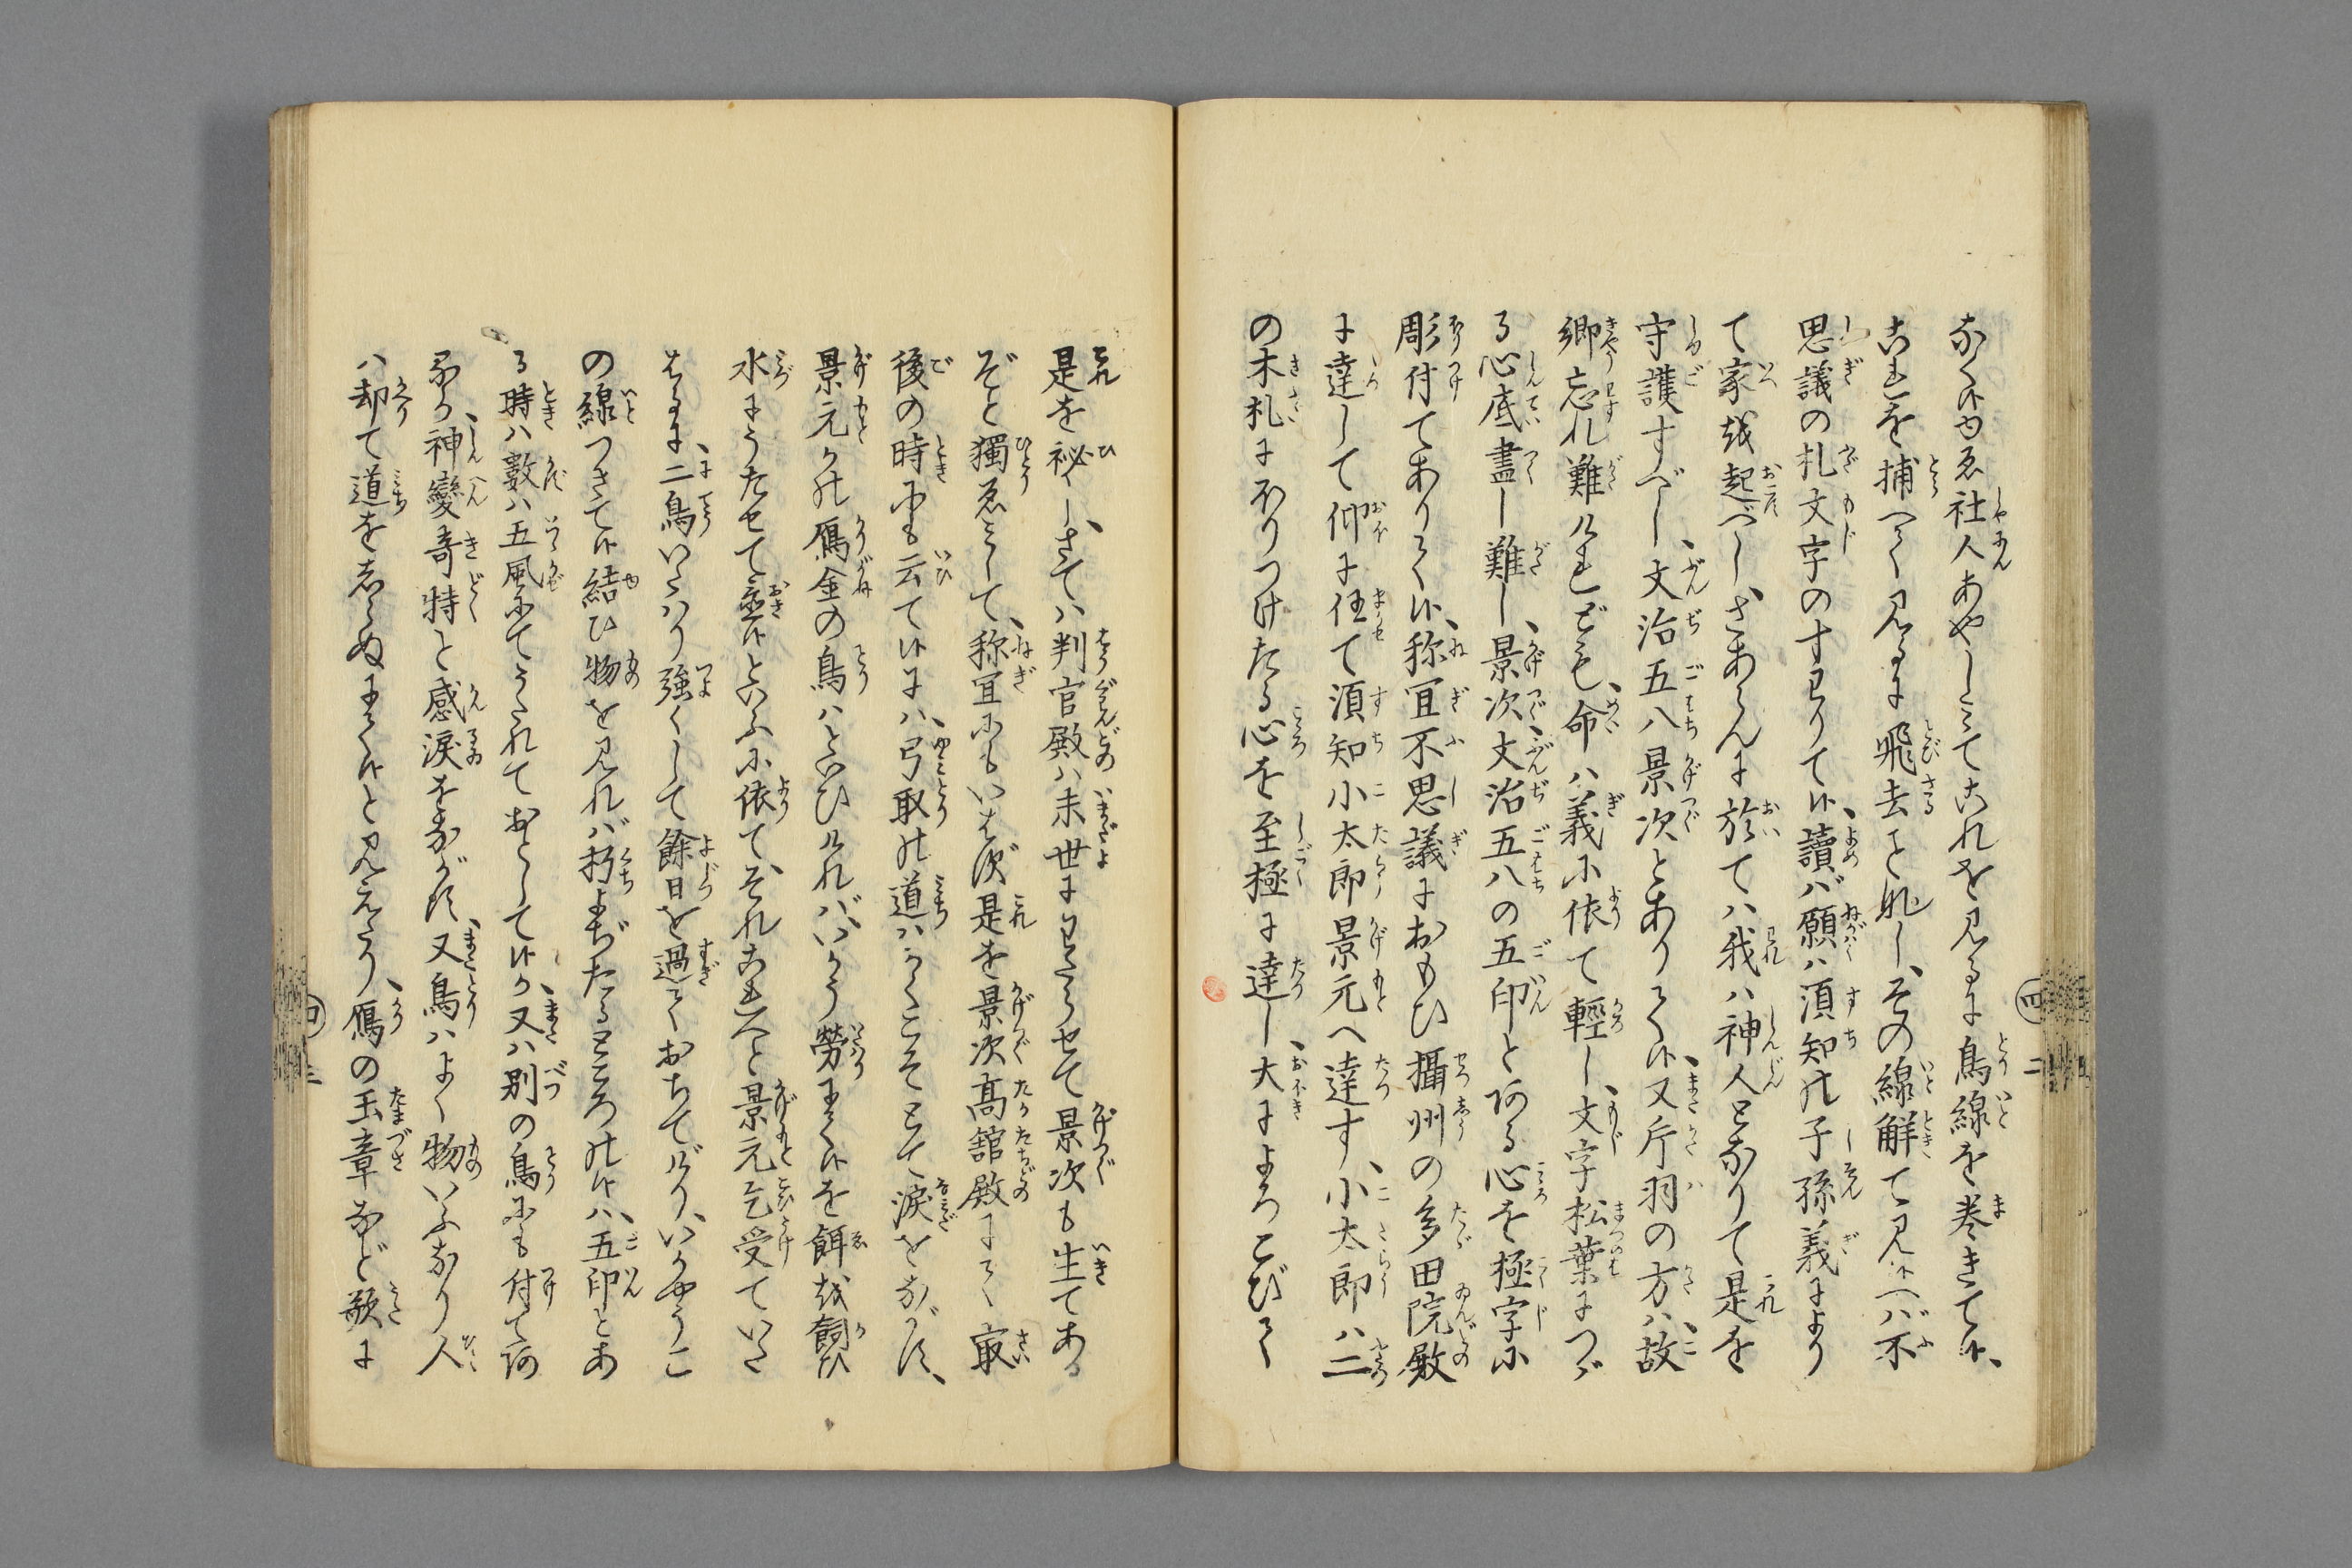 なく候ゆゑ社人あやしみてこれを見るに鳥線を巻きて候、
これを捕へて見るに飛去と飛し、その線解て見候へバ不
思議の札文字のすわりて候、讀バ願ハ須知の子孫義により
て家を起べし、さあらんに於てハ我ハ神人となりて是を
守護すべし、文治五八景次とありて候、又斤羽の方ハ、故
郷忘れ難けれども、命ハ義に依て輕し、文字松葉につゞ
る心底盡し難し、景次、文治五八の五印とある心を極字に
彫付てありて候、称冝不思議におもひ攝州の多田院殿
に達して仰に任て須知小太郎景元へ達す、小太郎ハ二
の木札にほりつけたる心を至極に達し、大によろこびて
是を祕し、さてハ判官殿ハ未世にわたらせて景次も生てある
ぞと獨ゑみして、称冝にもいはず是を景次髙舘殿にて㝡
後の時にも云て候にハ、弓取の道ハかくこそとて涙をながす、
景元かの鴈金の鳥ハとひければ、いかう勞て候を餌を飼ひ
水にうたせて置候といふに依て、それこれへと景元乞受ていた
はるに、二鳥いたハり強くして餘日を過てておちてげり、いかやうこ
の線つきて候結ひ物を見れバ朽よぢたるところの候ハ、五印とあ
る時ハ數ハ五風にてうたれておとして候か、又ハ別の鳥にも付てある
るか、神變竒特と感涙をながす、又鳥ハよく物いふなり人
ハ却て道をしらぬにて候と見えたり、鴈の玉章など歌に
四
二
四
三